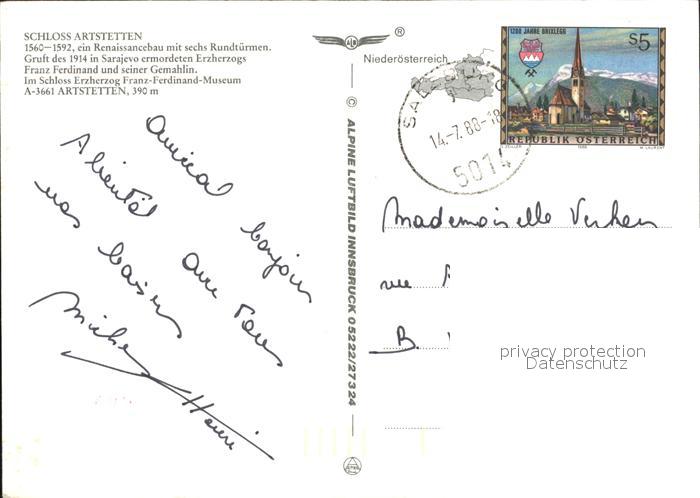 SCHLOSS ARTSTETTEN
1560—1592, ein Renaissancebau mit sechs Rundtürmen.
Gruft des 1914 in Sarajevo ermordeten Erzherzogs
Franz Ferdinand und seiner Gemahlin.
Im Schloss Erzherzog Franz-Ferdinand-Museum
A-3661 ARTSTETTEN, 390 m
Amical bonjour
A bientôt avec tous
nos baisers
®
Niederösterreich
© ALPINE LUFTBILD INNSBRUCK 05222/27324
1200 JAHRE BRIXLEGG
S5
REPUBLIK ÖSTERREICH
1988
M. LAURENT
14.-7.88-18
5014
Mademoiselle
rue
B.
privacy protection
Datenschutz